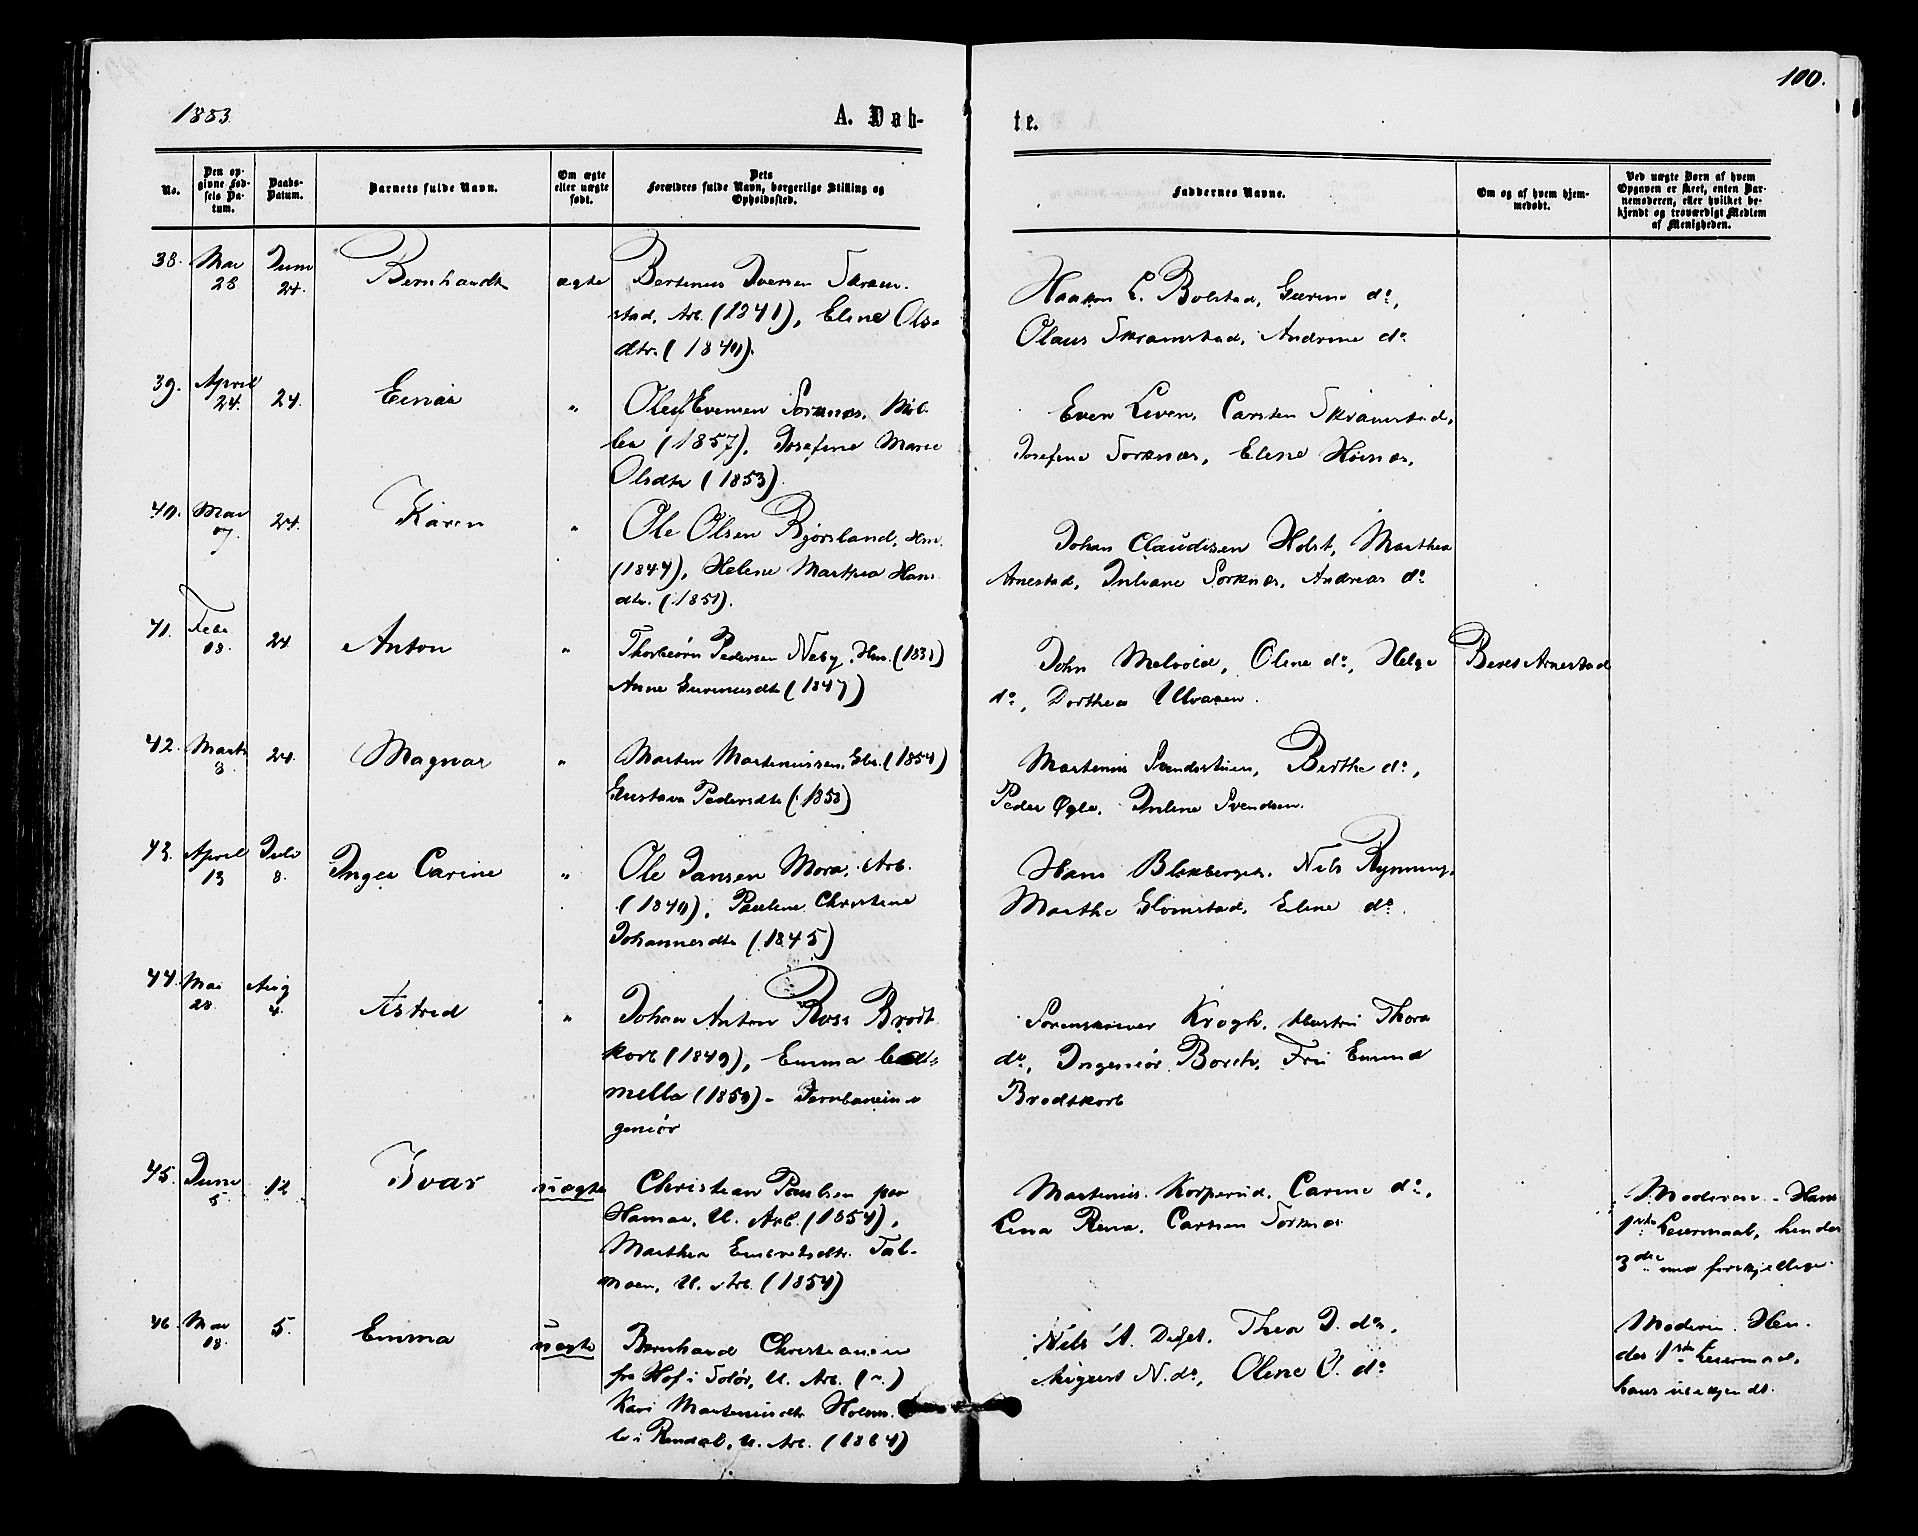 100.
1883.
A. Døb-
te.
No.
Den op-
givne Fød-
sels Da-
tum.
Daabs-
Datum.
Barnets fulde Navn.
Om ægte
eller uægte
født.
Dets
Forældres fulde Navn, borgerlige Stilling og
Opholdssted.
Faddernes Navne.
Om og af hvem hjem-
medøbt.
Ved uægte Børn af hvem
Opgaven er skeet, enten Bar-
nemoderen, eller hvilket be-
kjendt og troværdigt Medlem
af Menigheden.
38. Mai 28 Juni 24. Bernhardt ægte Bertinus Iversen Skram-
stad, Arb. (1841), Eline Ols-
dtr. (1840).
Haakon L. Bolstad, Gurine do,
Olaus Skramstad, Andrine do
39. April 24. 24. Einar " Oluf Evensen Sorknæs, Møl-
ler (1857), Josefine Marie
Olsdtr (1853).
Even Liven, Carsten Skramstad,
Josefine Sorknæs, Eline Høinæs,
40. Mai 07. 24. Karen " Ole Olsen Bjørsland, Hm.
(1844), Helene Marthea Hans
dtr. (1851).
Johan Claudisen Holst, Marthea
Arnestad, Juliane Sorknæs, Andreas do
41. Febr. 08. 24 Anton " Thorbiørn Pedersen Neby, Hm. (1831)
Anne Gurinusdtr (1847)
John Melvold, Oline do, Helge
do, Dorthea Ulvaaen.
Beret Arnestad
42. Marts 8. 24. Magnar " Marten Marteniussen, Gbr. (1854)
Gustava Pedersdtr (1858)
Martinus Svendstuen, Berthe do,
Peder Ogle, Juline Svendsen.
43. April 13 Juli 8. Inga Carine " Ole Jansen Mora, Arb.
(1840), Pauline Christine
Johannesdtr (1845)
Hans Blekberget, Nils Rynning,
Marthe Glomstad, Eline do
44. Mai 28 Aug 4. Astrid " Johan Anton Ross Brodt
korb (1849), Emma
mella (1859) - Jernbanein-
geniør
Sorenskriver Krogh, Hustru Thora
do, Ingeniør Borch, Fru Emma
Brodtkorb
45. Juni 5. 12 Ivar uægte Christian Paulsen paa
Hamar, U. Arb. (1854),
Marthea Embretsdtr. Tal-
moen, U. Arb. (1854)
Martinus Korperud, Carine do,
Lina Rena, Carsten Sorknæs
Moderen - Hans
1ste Leiermaal, hendes
3die med forskjellige.
46. Mai 08. 5. Emma uægte Bernhard Christiansen
fra Hof i Solør, U. Arb. ( )
Kari Martiniusdtr Holm-
bo i Rendal, U. Arb. (1864)
Nils A. Deset, Thea J. do,
August N. do, Oline O. do
Moderen. Hen-
des 1ste Leiermaal,
hans ubekjendt.